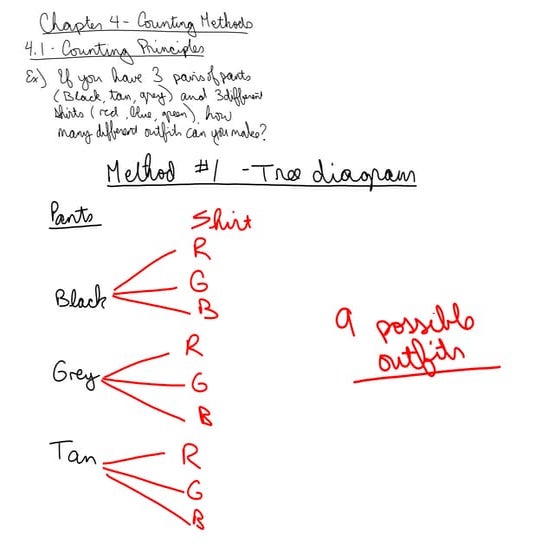 Chapter 4 - Counting Methods
4.1 - Counting Principles
Ex) If you have 3 pairs of pants
(Black, tan, grey) and 3 different
shirts (red, blue, green), how
many different outfits can you make?
Method #1 - Tree diagram
Pants Shirt
R
G
Black B
R
Grey G
B
Tan R
G
B
9 possible
outfits